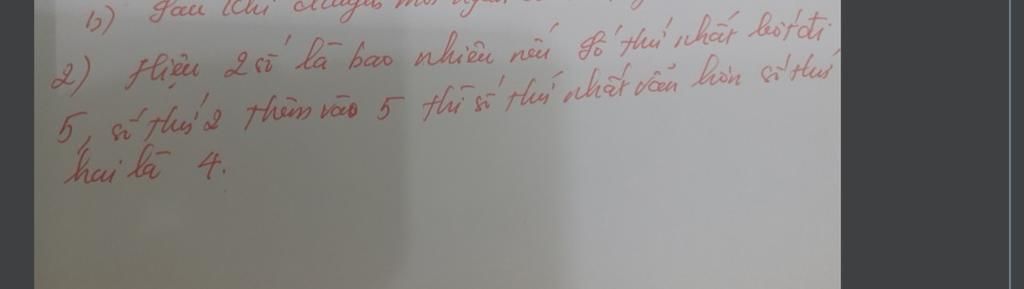 b) Sau khi chuyển mỗi
2) Hiệu 2 số là bao nhiêu nếu số thứ nhất bớt đi
5, số thứ 2 thêm vào 5 thì số thứ nhất vẫn hơn số thứ
hai là 4.